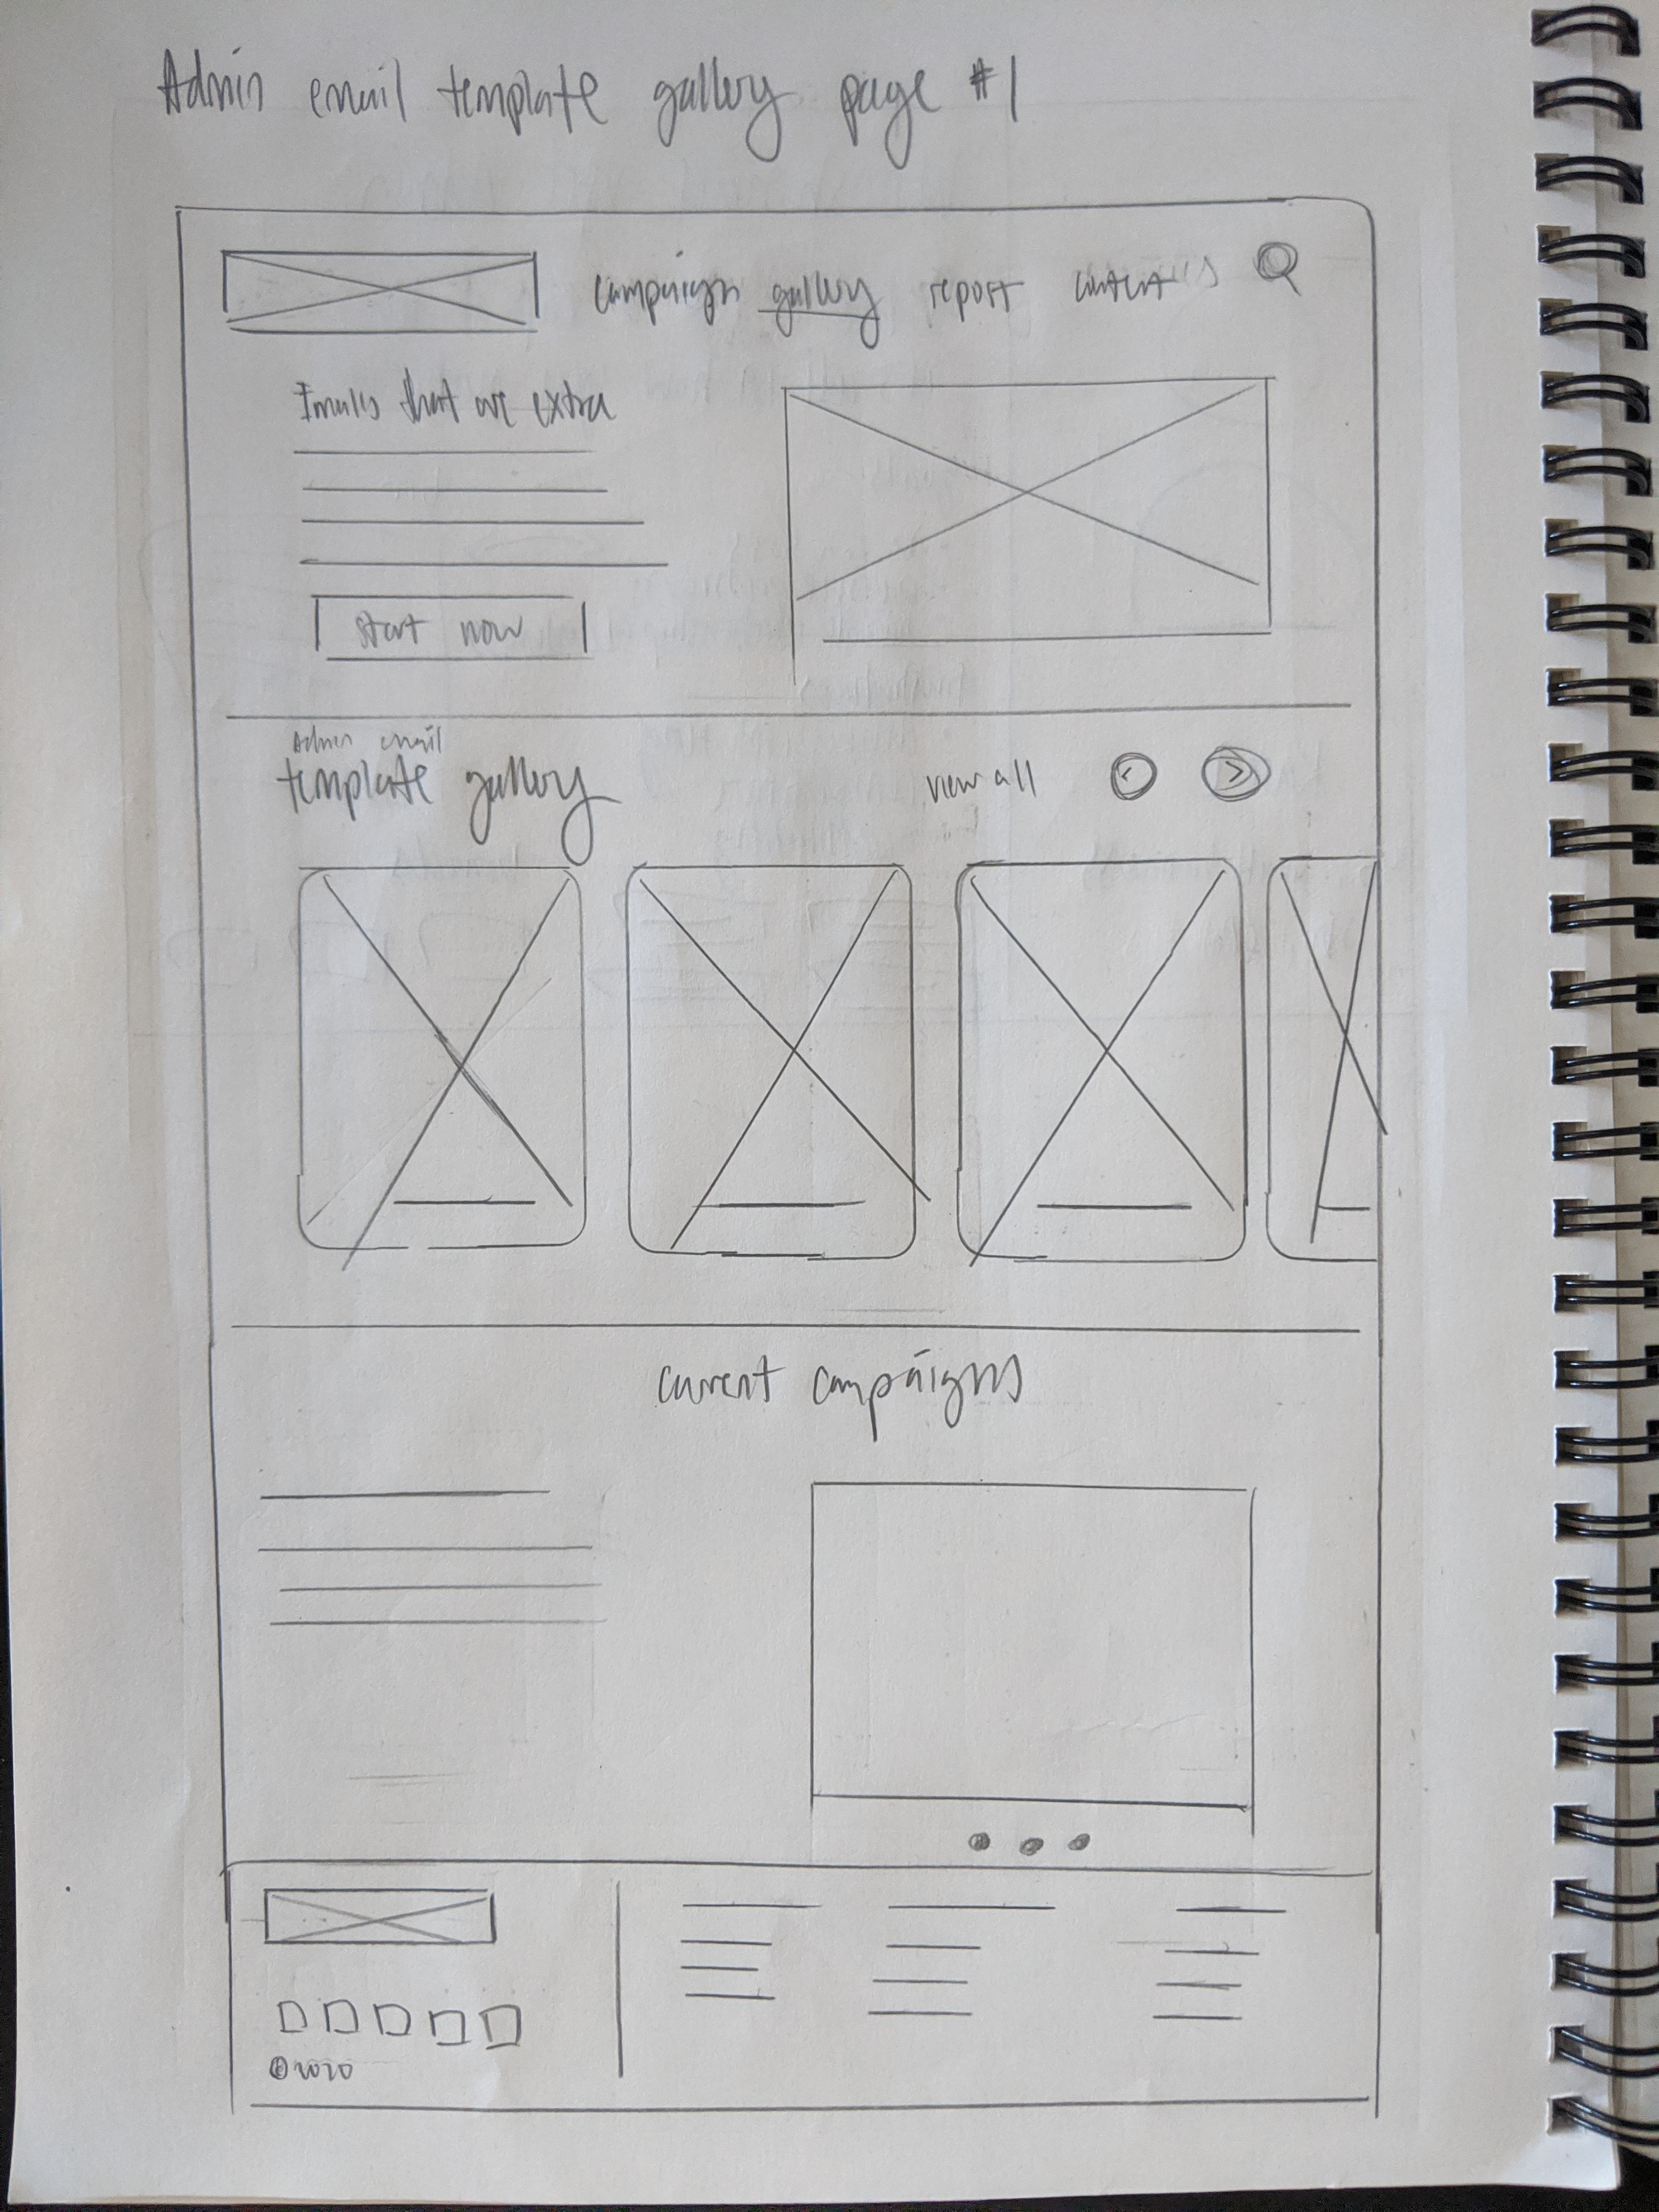 Admin email template gallery page #1
campaign gallery report content
Emails that are extra
start now
Admin email
template gallery
view all < >
current campaigns
©2020